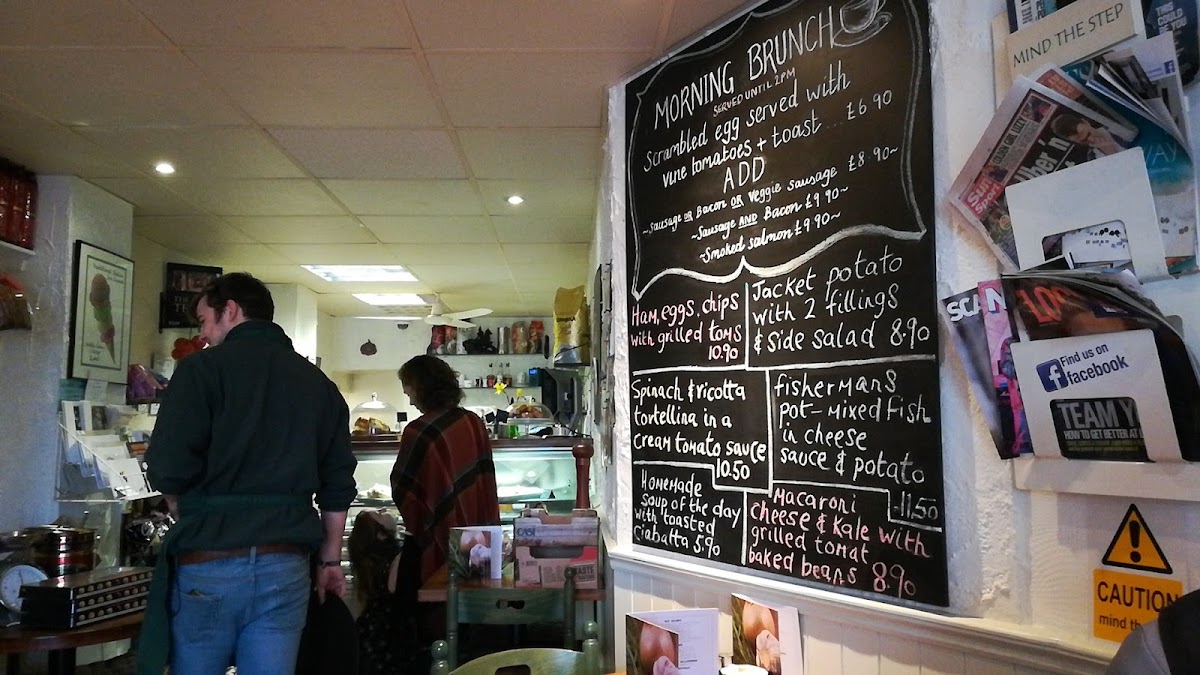 MORNING BRUNCH
SERVED UNTIL 2PM
Scrambled egg served with
vine tomatoes + toast... £6.90
ADD
~Sausage OR Bacon OR Veggie Sausage £8.90~
~Sausage AND Bacon £9.90~
~Smoked salmon £9.90~
Ham, eggs, chips
with grilled toms
10.90
Jacket potato
with 2 fillings
& side salad 8.90
Spinach & ricotta
tortellina in a
cream tomato sauce
10.50
fishermans
pot-mixed fish
in cheese
sauce & potato
11.50
Homemade
soup of the day
with toasted
ciabatta 5.90
Macaroni
cheese & kale with
grilled tomat
baked beans 8.90
MIND THE STEP
Sun
Find us on
facebook
TEAM
HOW TO GET BETTER AT
CAUTION
mind